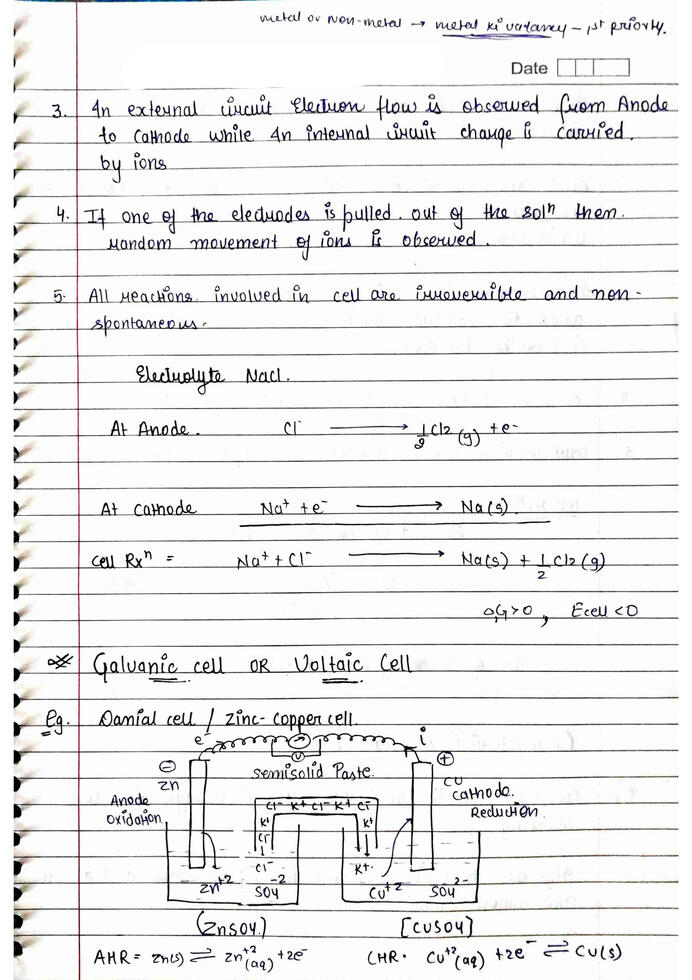 metal or non-metal → metal ki valancy - 1st priority.
Date
3. In external circuit Electron flow is observed from Anode
to Cathode while In internal circuit charge is carried.
by ions
4. If one of the electrodes is pulled. out of the solⁿ then.
random movement of ions is observed.
5. All reactions involved in cell are irreversible and non-
spontaneous.
Electrolyte Nacl.
At Anode. Cl⁻ ⟶ 1/2 Cl2 (g) + e⁻
At cathode Na⁺ + e⁻ ⟶ Na(s).
Cell Rxⁿ = Na⁺ + Cl⁻ ⟶ Na(s) + 1/2 Cl2 (g)
ΔG>0, Ecell <0
Galvanic cell OR Voltaic Cell
Eg. Danial cell / Zinc-Copper cell.
e⁻ V i
⊖ Semisolid Paste. ⊕
Zn Cu
Anode Cl⁻ K⁺ Cl⁻ K⁺ Cl⁻ Cathode.
Oxidation K⁺ K⁺ Reduction.
Cl⁻
Cl⁻ K⁺
Zn⁺² SO4⁻² Cu⁺² SO4²⁻
(ZnSO4) [CuSO4]
AHR = Zn(s) ⇌ Zn⁺²(aq) + 2e⁻ CHR. Cu⁺²(aq) + 2e⁻ ⇌ Cu(s)